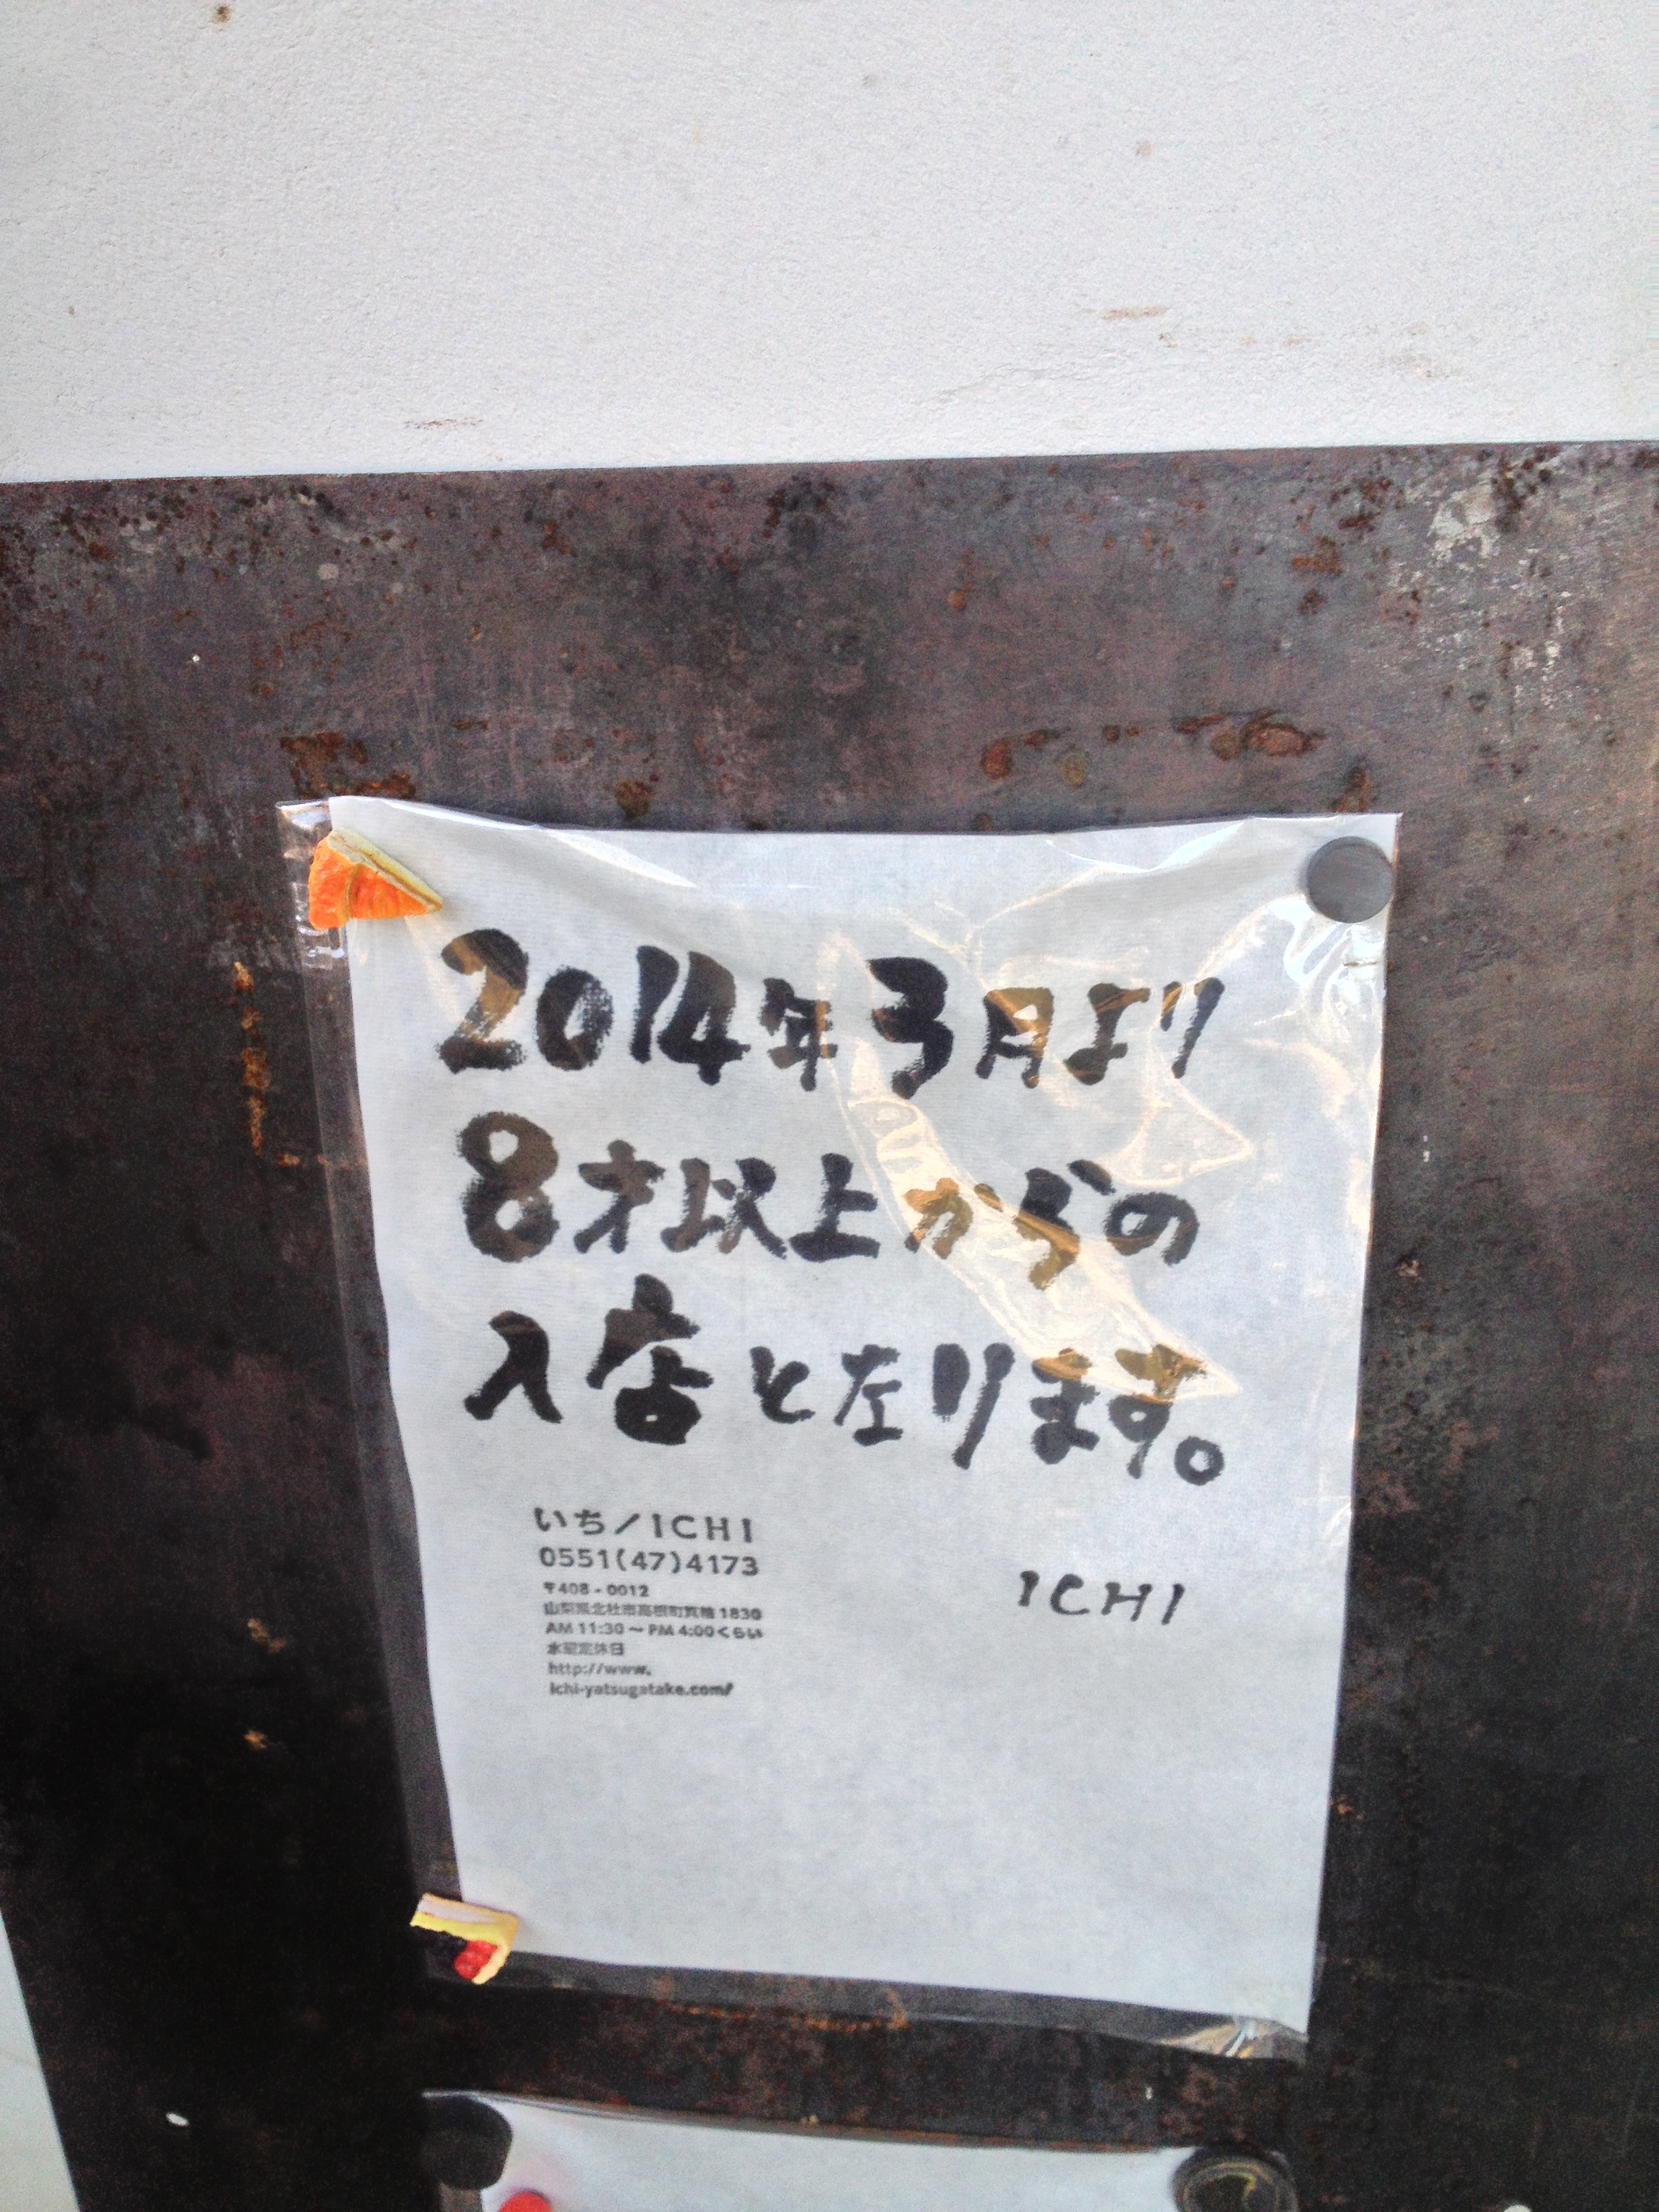 2014年3月より
8才以上からの
入店と左ります。
いち/ICHI
0551(47)4173
〒408-0012
山梨県北杜市高根町箕輪1830
AM 11:30～PM 4:00くらい
水曜定休日
http://www.
ichi-yatsugatake.com/
ICHI